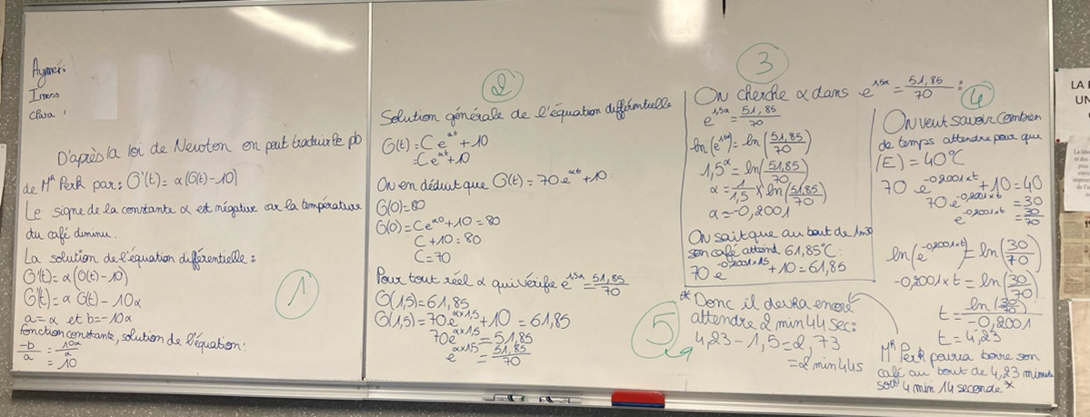 Aymeri
Iness
Clara
①
D'après la loi de Newton on peut traduire le pb
de Mr Perk par : θ'(t) = α(θ(t)-10)
Le signe de la constante α est négative car la température
du café diminu.
La solution de l'équation différentielle :
θ'(t) = α(θ(t)-10)
θ'(t) = α θ(t) - 10α
a = α et b = -10α
fonction constante, solution de l'équation :
-b/a = 10α/α
= 10
②
Solution générale de l'équation différentielle
θ(t) = C e^at + 10
= C e^αt + 10
On en déduit que θ(t) = 70 e^αt + 10
θ(0) = 80
θ(0) = C e^α0 + 10 = 80
C + 10 = 80
C = 70
Pour tout réel α qui vérifie e^1,5α = 51,85/70
θ(1,5) = 61,85
θ(1,5) = 70 e^α×1,5 + 10 = 61,85
70 e^α×1,5 = 51,85
e^α×1,5 = 51,85/70
③
On cherche α dans e^1,5α = 51,85/70 :
e^1,5α = 51,85/70
ln(e^1,5α) = ln(51,85/70)
1,5α = ln(51,85/70)
α = 1/1,5 × ln(51,85/70)
α = -0,2001
On sait que au bout de 1m30
son café attend 61,85°C :
70 e^-0,2001×1,5 + 10 = 61,85
④
On veut savoir combien
de temps attendre pour que
(E) = 40°C
70 e^-0,2001×t + 10 = 40
70 e^-0,2001×t = 30
e^-0,2001×t = 30/70
ln(e^-0,2001×t) = ln(30/70)
-0,2001×t = ln(30/70)
t = ln(30/70)/-0,2001
t = 4,23
Mr Perk pourra boire son
café au bout de 4,23 minutes
soit 4 min 14 seconde *
⑤
* Donc il devra encore
attendre 2 min 44 sec :
4,23 - 1,5 = 2,73
= 2 min 44s
LA
UN